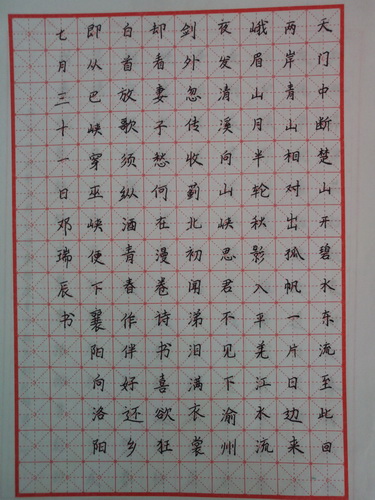 天门中断楚山开碧水东流至此回
两岸青山相对出孤帆一片日边来
峨眉山月半轮秋影入平羌江水流
夜发清溪向山峡忍君不见下渝州
剑外忽传收蓟北初闻涕泪满衣裳
却看妻子愁何在漫卷诗书喜欲狂
白首放歌须纵酒青春作伴好还乡
即从巴峡穿巫峡便下襄阳向洛阳
七月三十一日邓瑞辰书